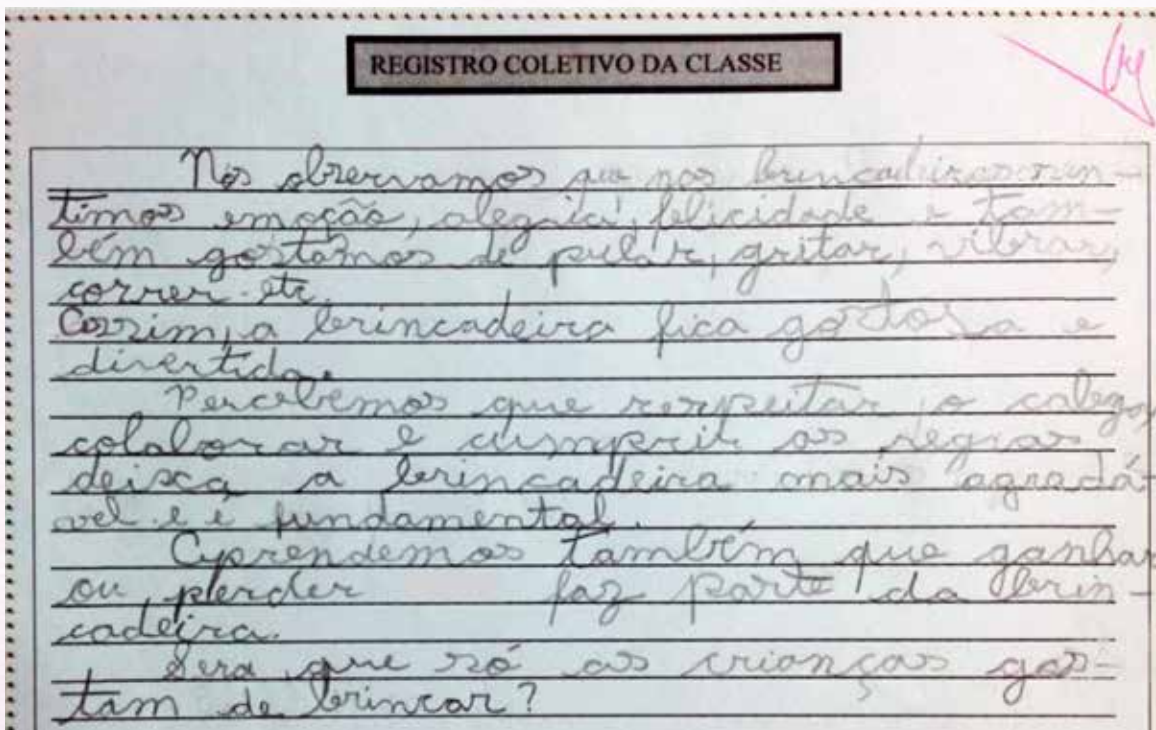 REGISTRO COLETIVO DA CLASSE
Nós observamos que nas brincadeiras sen-
timos emoção, alegria, felicidade e tam-
bém gostamos de pular, gritar, vibrar,
correr etc.
Assim, a brincadeira fica gostosa e
divertida.
Percebemos que respeitar o colega,
colaborar e cumprir as regras
deixa a brincadeira mais agradá-
vel e é fundamental.
Aprendemos também que ganhar
ou perder faz parte da brin-
cadeira.
Sera que só as crianças gos-
tam de brincar?